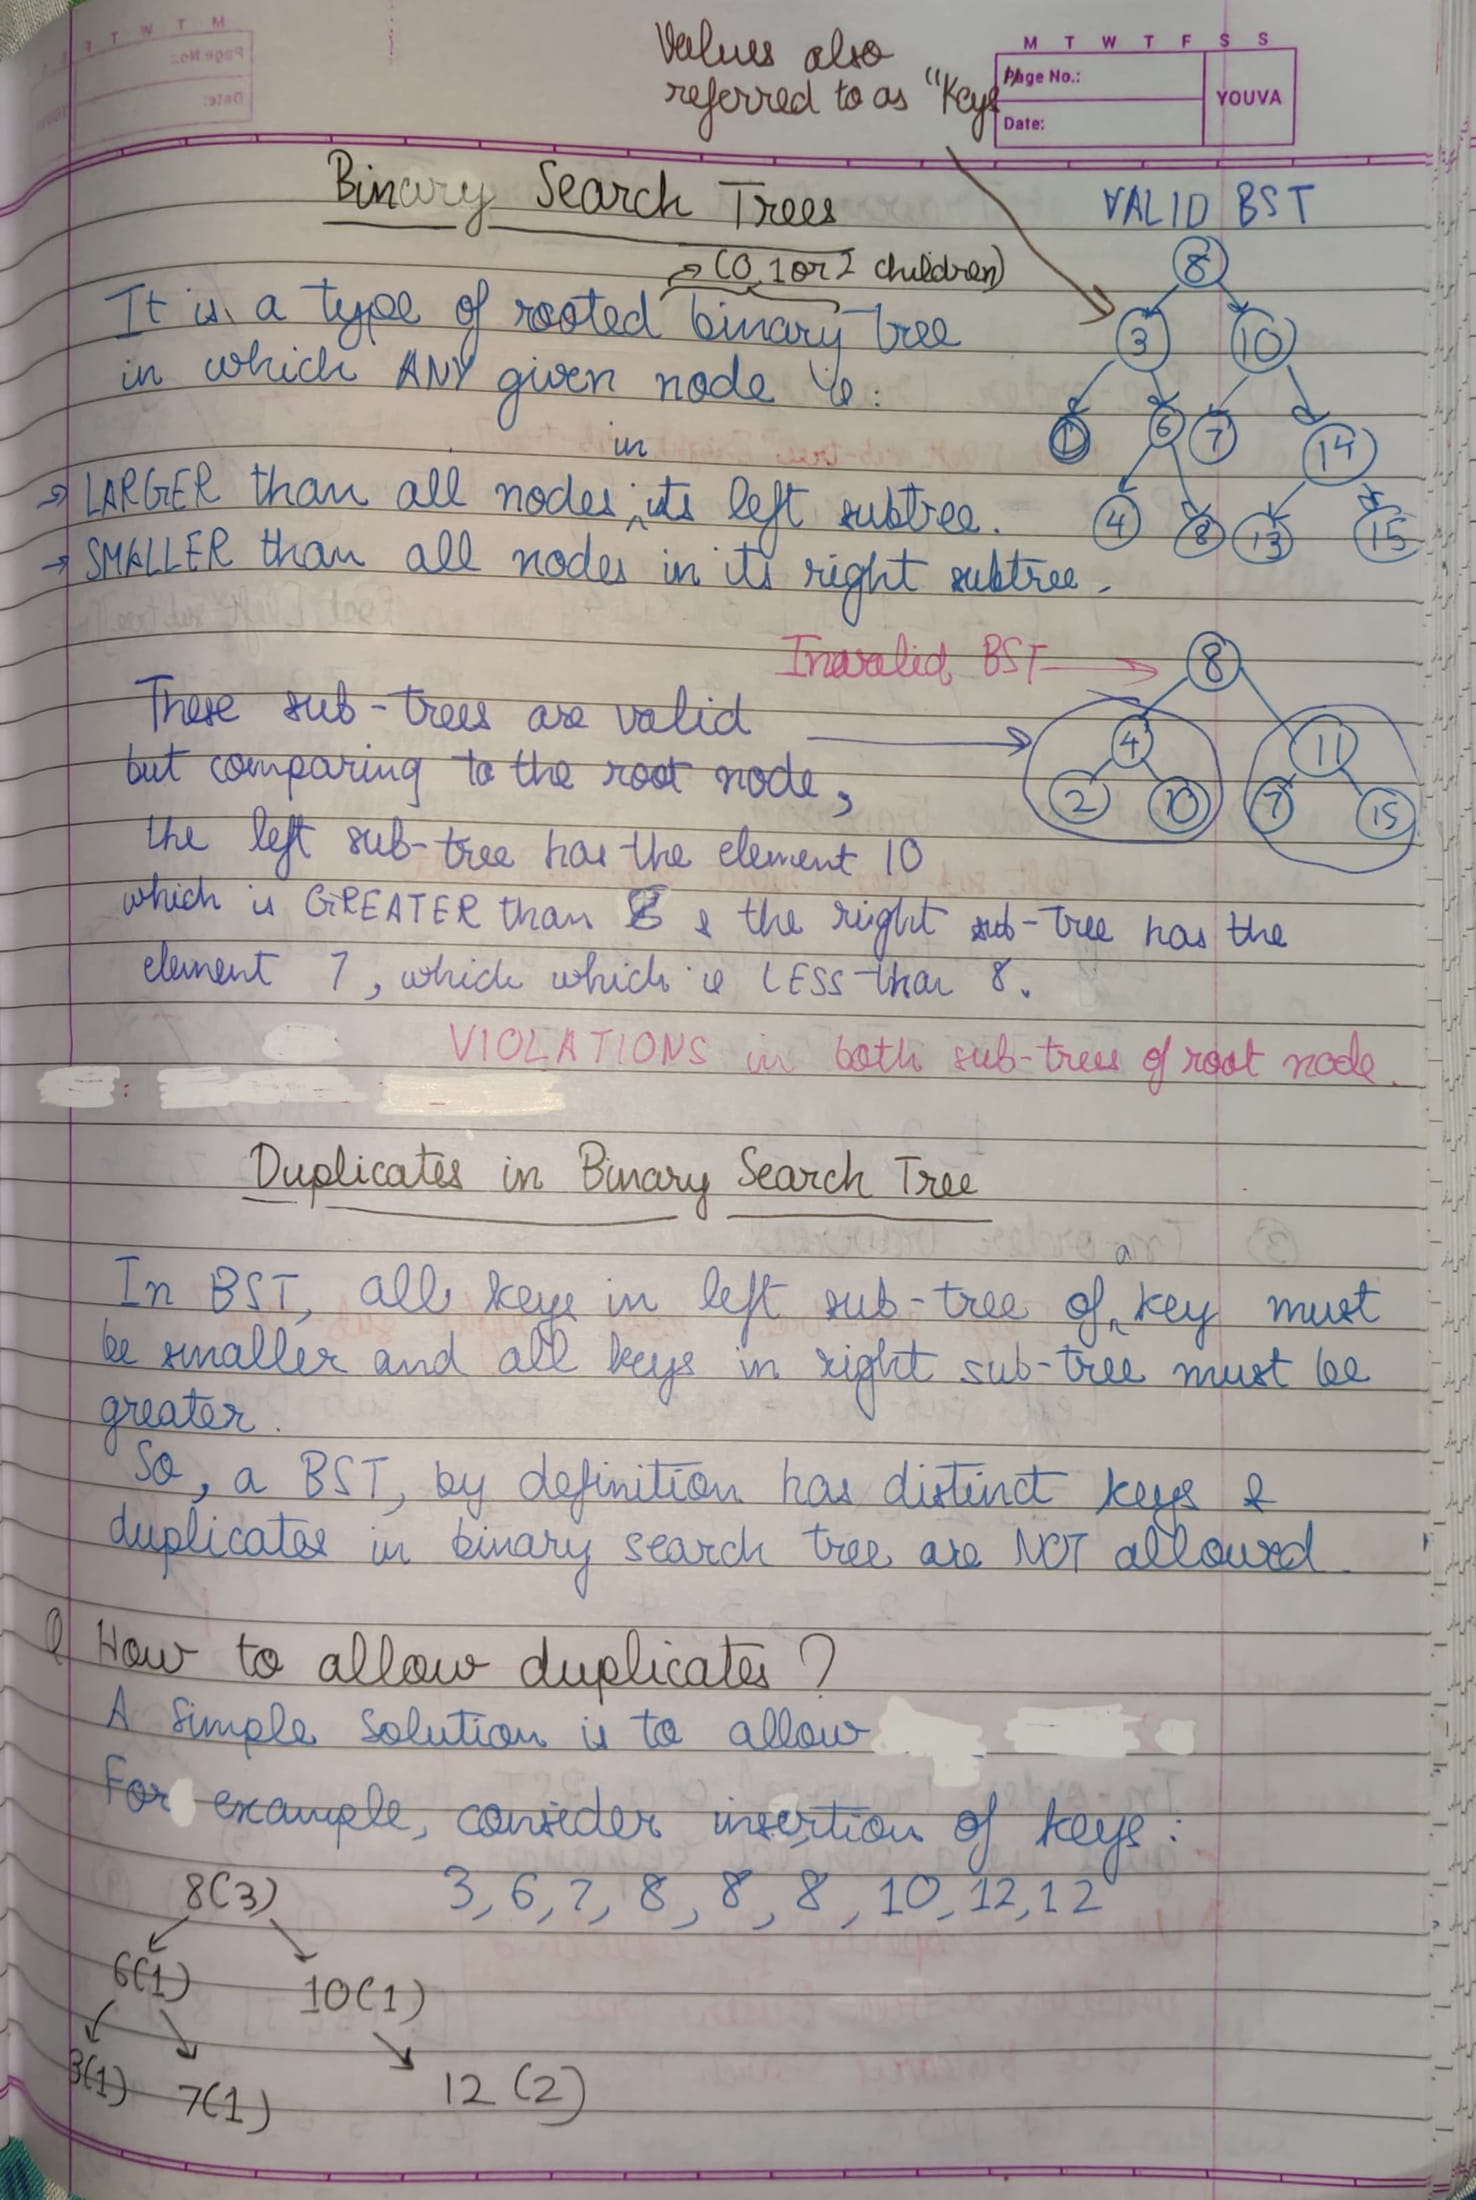 Values also
referred to as "Keys"
M T W T F S S
Page No.:
Date:
YOUVA
Binary Search Trees
VALID BST
→ (0, 1 or 2 children)
It is a type of rooted binary tree
in which ANY given node is:
→ LARGER than all nodes in its left subtree.
→ SMALLER than all nodes in its right subtree.
8
3 10
1 6 7 14
4 8 13 15
Invalid BST
8
4 11
2 10 7 15
These sub-trees are valid
but comparing to the root node,
the left sub-tree has the element 10
which is GREATER than 8 & the right sub-tree has the
element 7, which which is LESS than 8.
VIOLATIONS in both sub-trees of root node.
Duplicates in Binary Search Tree
In BST, all keys in left sub-tree of a key must
be smaller and all keys in right sub-tree must be
greater.
So, a BST, by definition has distinct keys &
duplicates in binary search tree are NOT allowed.
Q How to allow duplicates?
A simple solution is to allow
For example, consider insertion of keys:
3, 6, 7, 8, 8, 8, 10, 12, 12
8(3)
6(1) 10(1)
3(1) 7(1) 12(2)